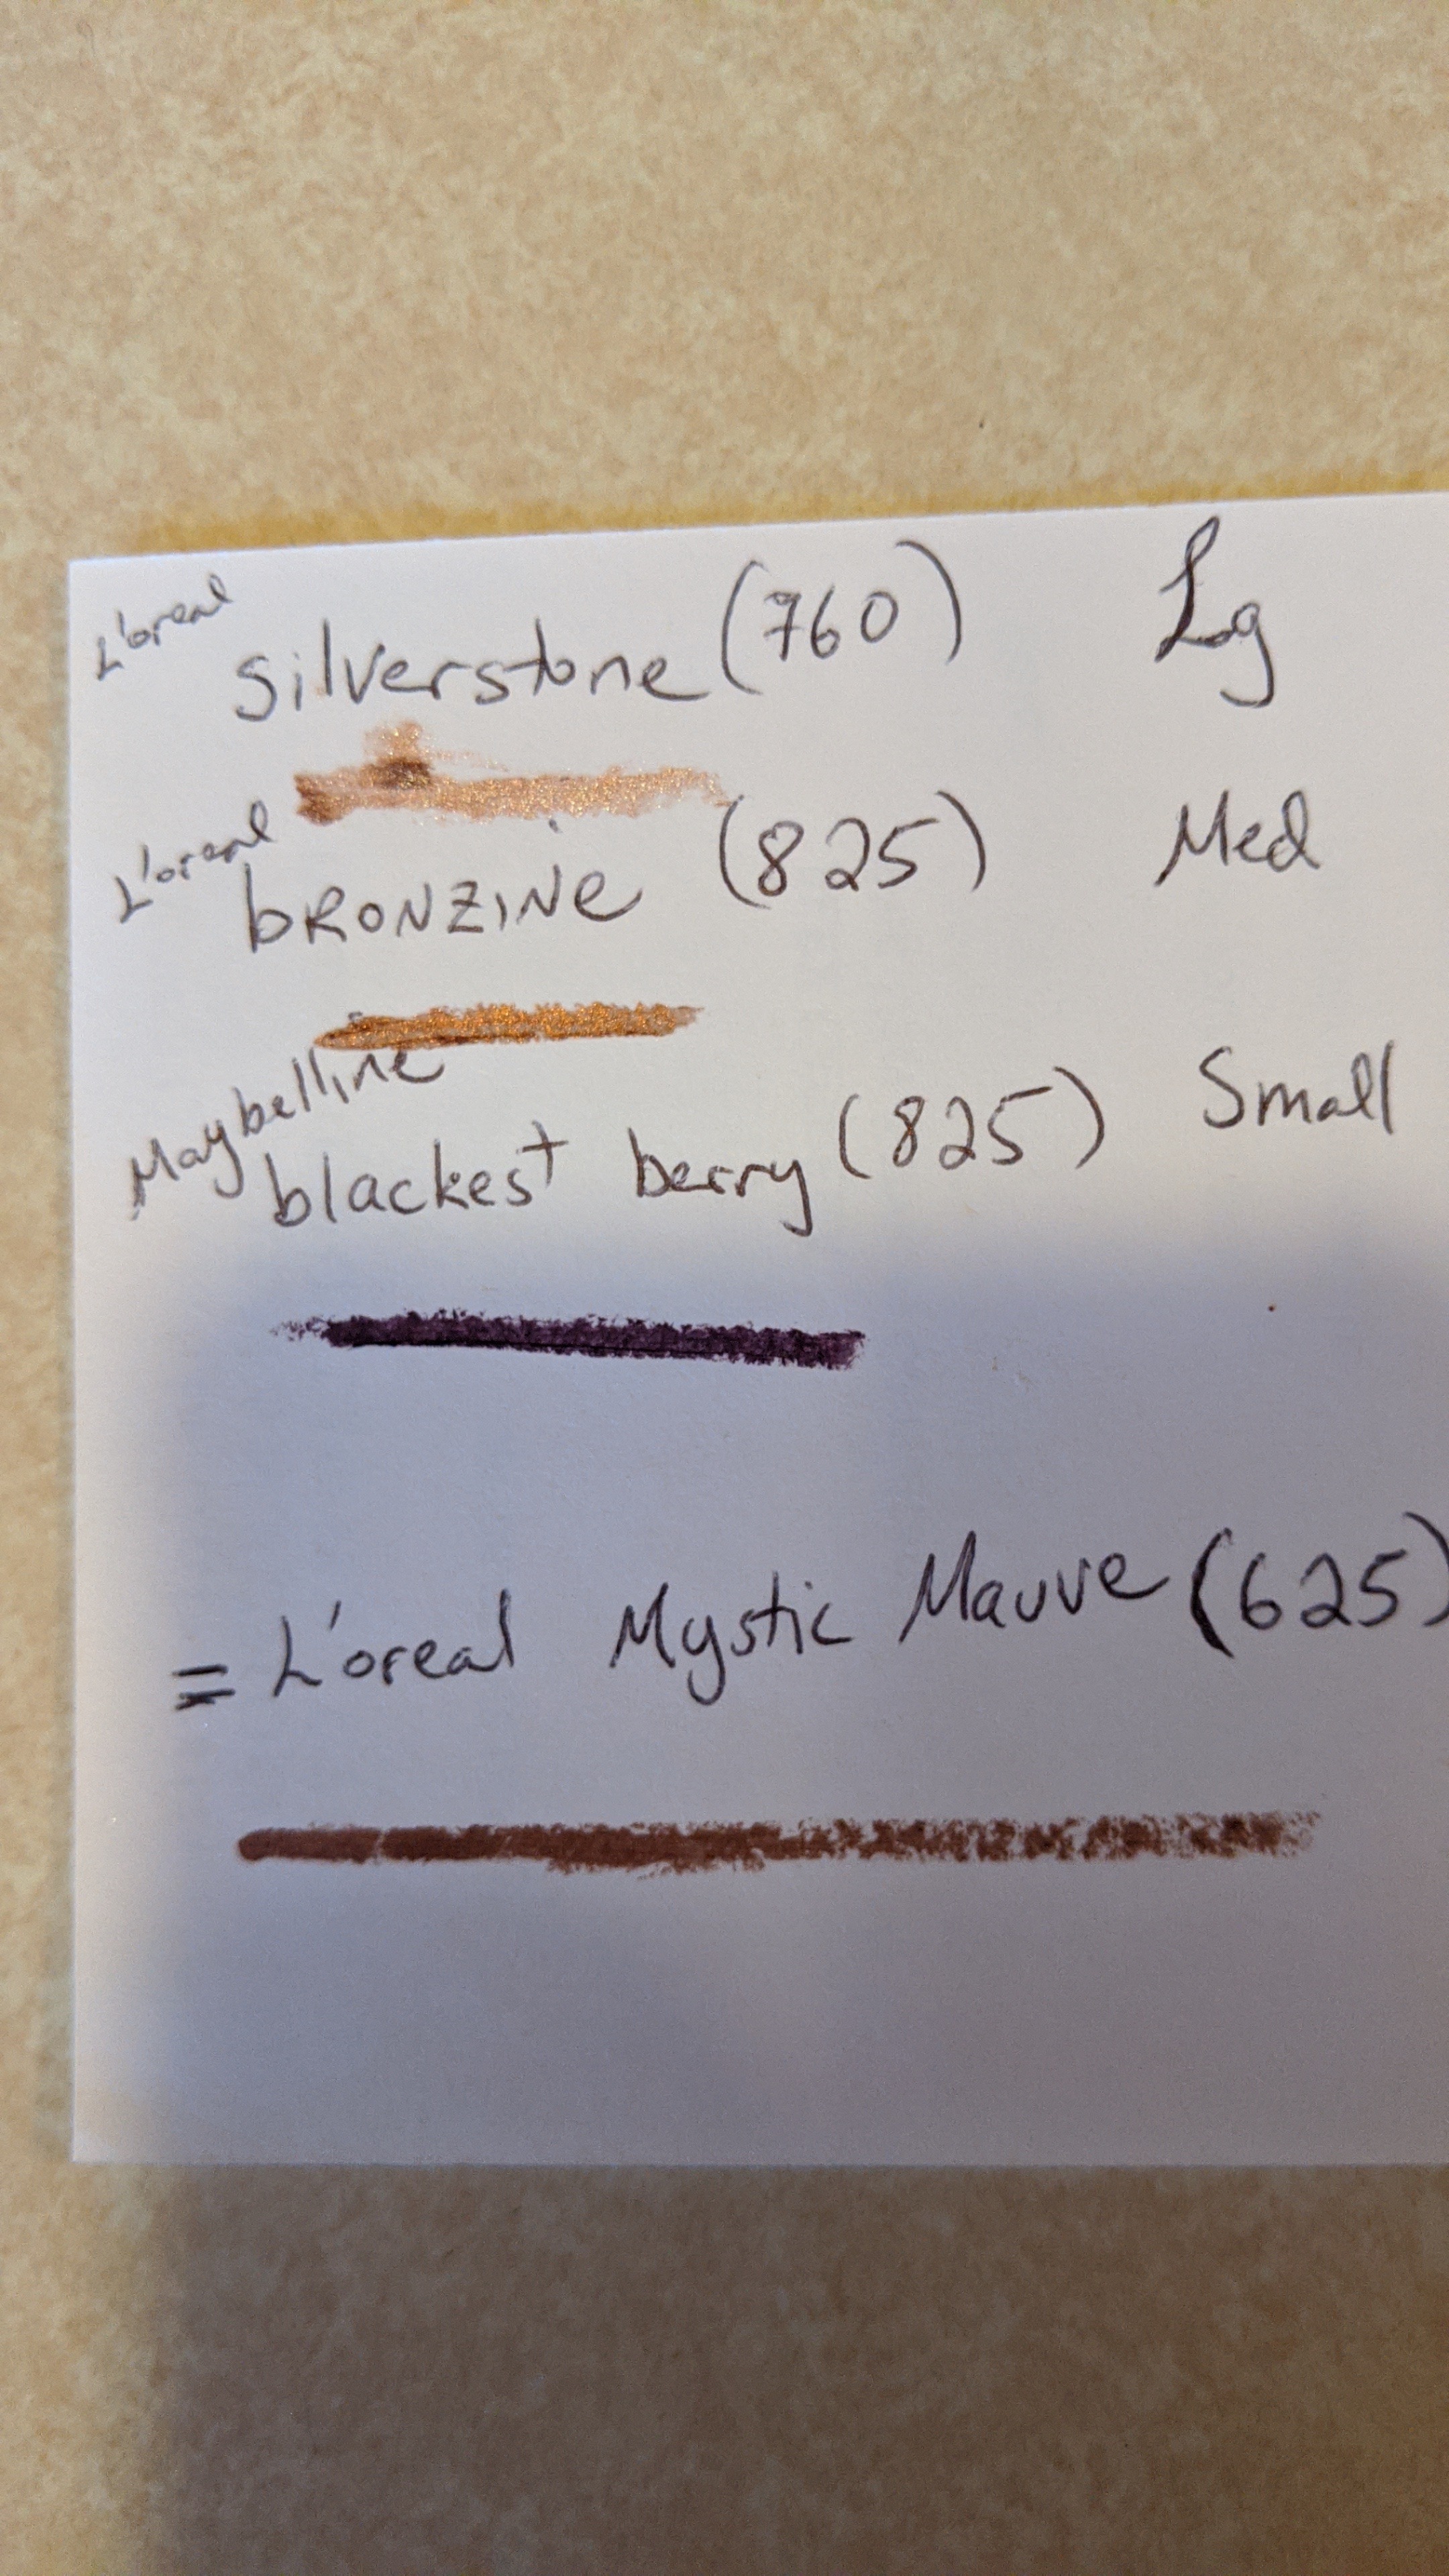 L'oreal
silverstone (760) Lg
L'oreal
bRONZINe (825) Med
Maybelline
blackest berry (825) Small
= L'oreal Mystic Mauve (625)